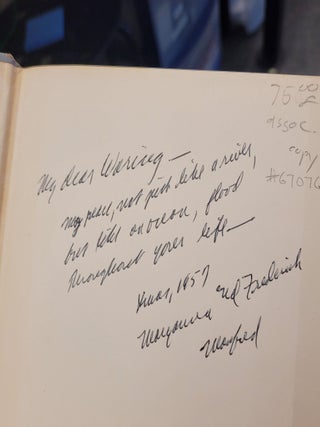 My dear Waring—
may peace, not just like a river,
but like an ocean, flood
throughout your life—
Xmas, 1957
Maryanna and Frederick
75.00
assoc.
copy
#67076